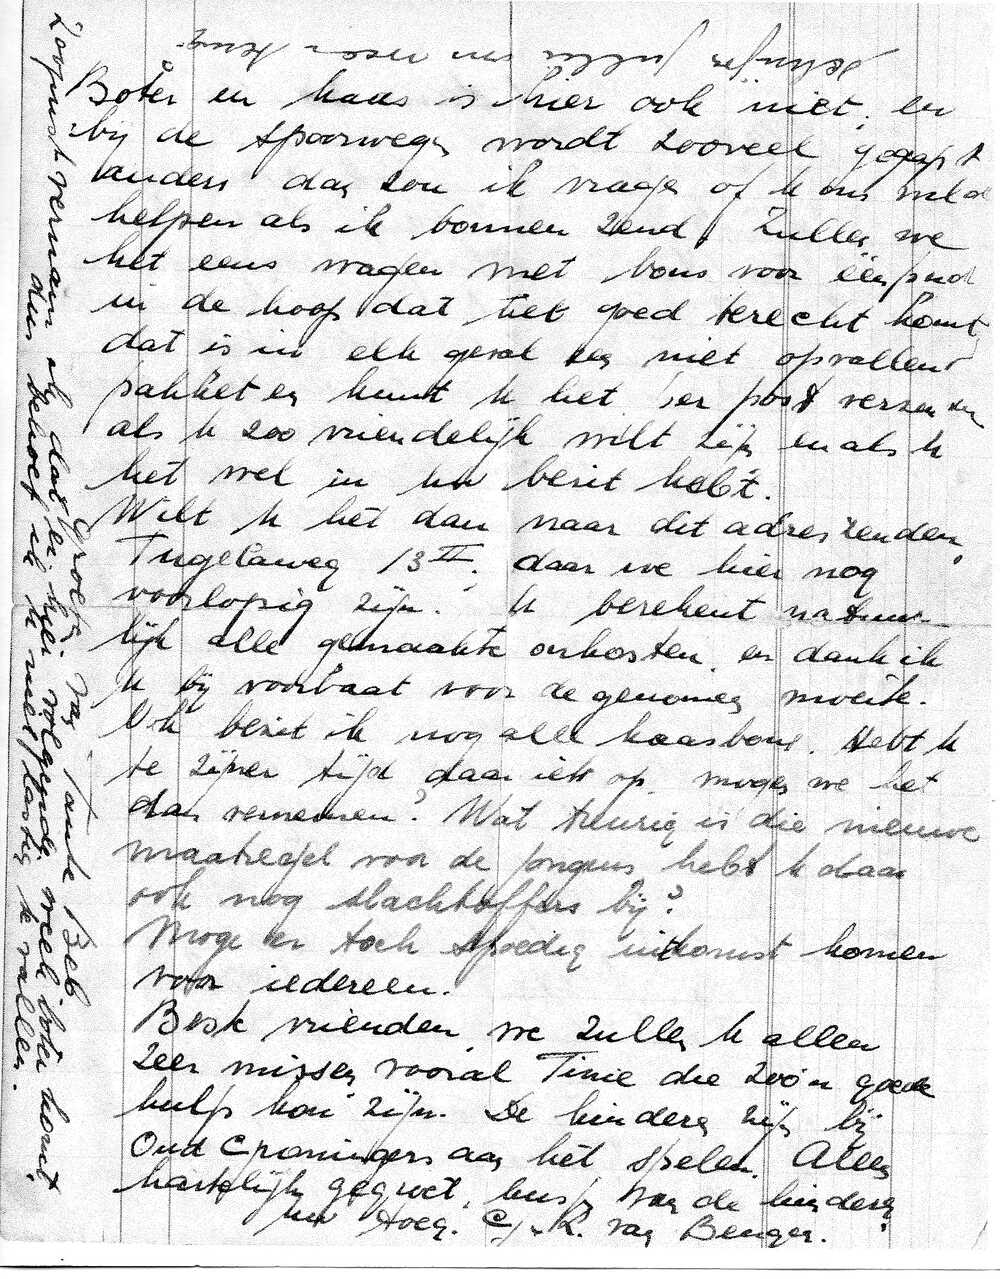 Schrijven jullie ons weer terug.
Boter en kaas is hier ook niet, en
bij de spoorwegen wordt zooveel gegapt
anders dan zou ik vragen of U ons wilde
helpen als ik bonnen zend. Zullen we
het eens wagen met bons voor één pond
in de hoop dat het goed terecht komt,
dat is in elk geval een niet opvallend
pakket en kunt U het per post verzenden
als U zoo vriendelijk wilt zijn en als U
het wel in Uw bezit hebt.
Wilt U het dan naar dit adres zenden,
Tugelaweg 13 II, daar we hier nog
voorlopig zijn. U berekent natuur-
lijk alle gemaakte onkosten, en dank ik
U bij voorbaat voor de genomen moeite.
Ook bezit ik nog alle kaasbons. Hebt U
te zijner tijd daar iets op, mogen we het
dan vernemen? Wat treurig is die nieuwe
maatregel voor de jongens, hebt U daar
ook nog slachtoffers bij?
Moge er toch spoedig uitkomst komen
voor iedereen.
Beste vrienden, we zullen U allen
zeer missen vooral Tinie die zoo'n goede
hulp kon zijn. De kinderen zijn bij
Oud Groningers aan het spelen. Allen
hartelijk gegroet, kusjes van de kinderen
uw Hoog. C. v. R. van Bengen.
Groeten van Tante Beb
Zoojuist vernam ik dat er hier volgende week boter komt
dus behoef ik U niet lastig te vallen.